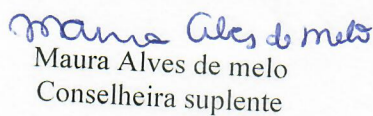 Maura Alves de melo
Maura Alves de melo
Conselheira suplente